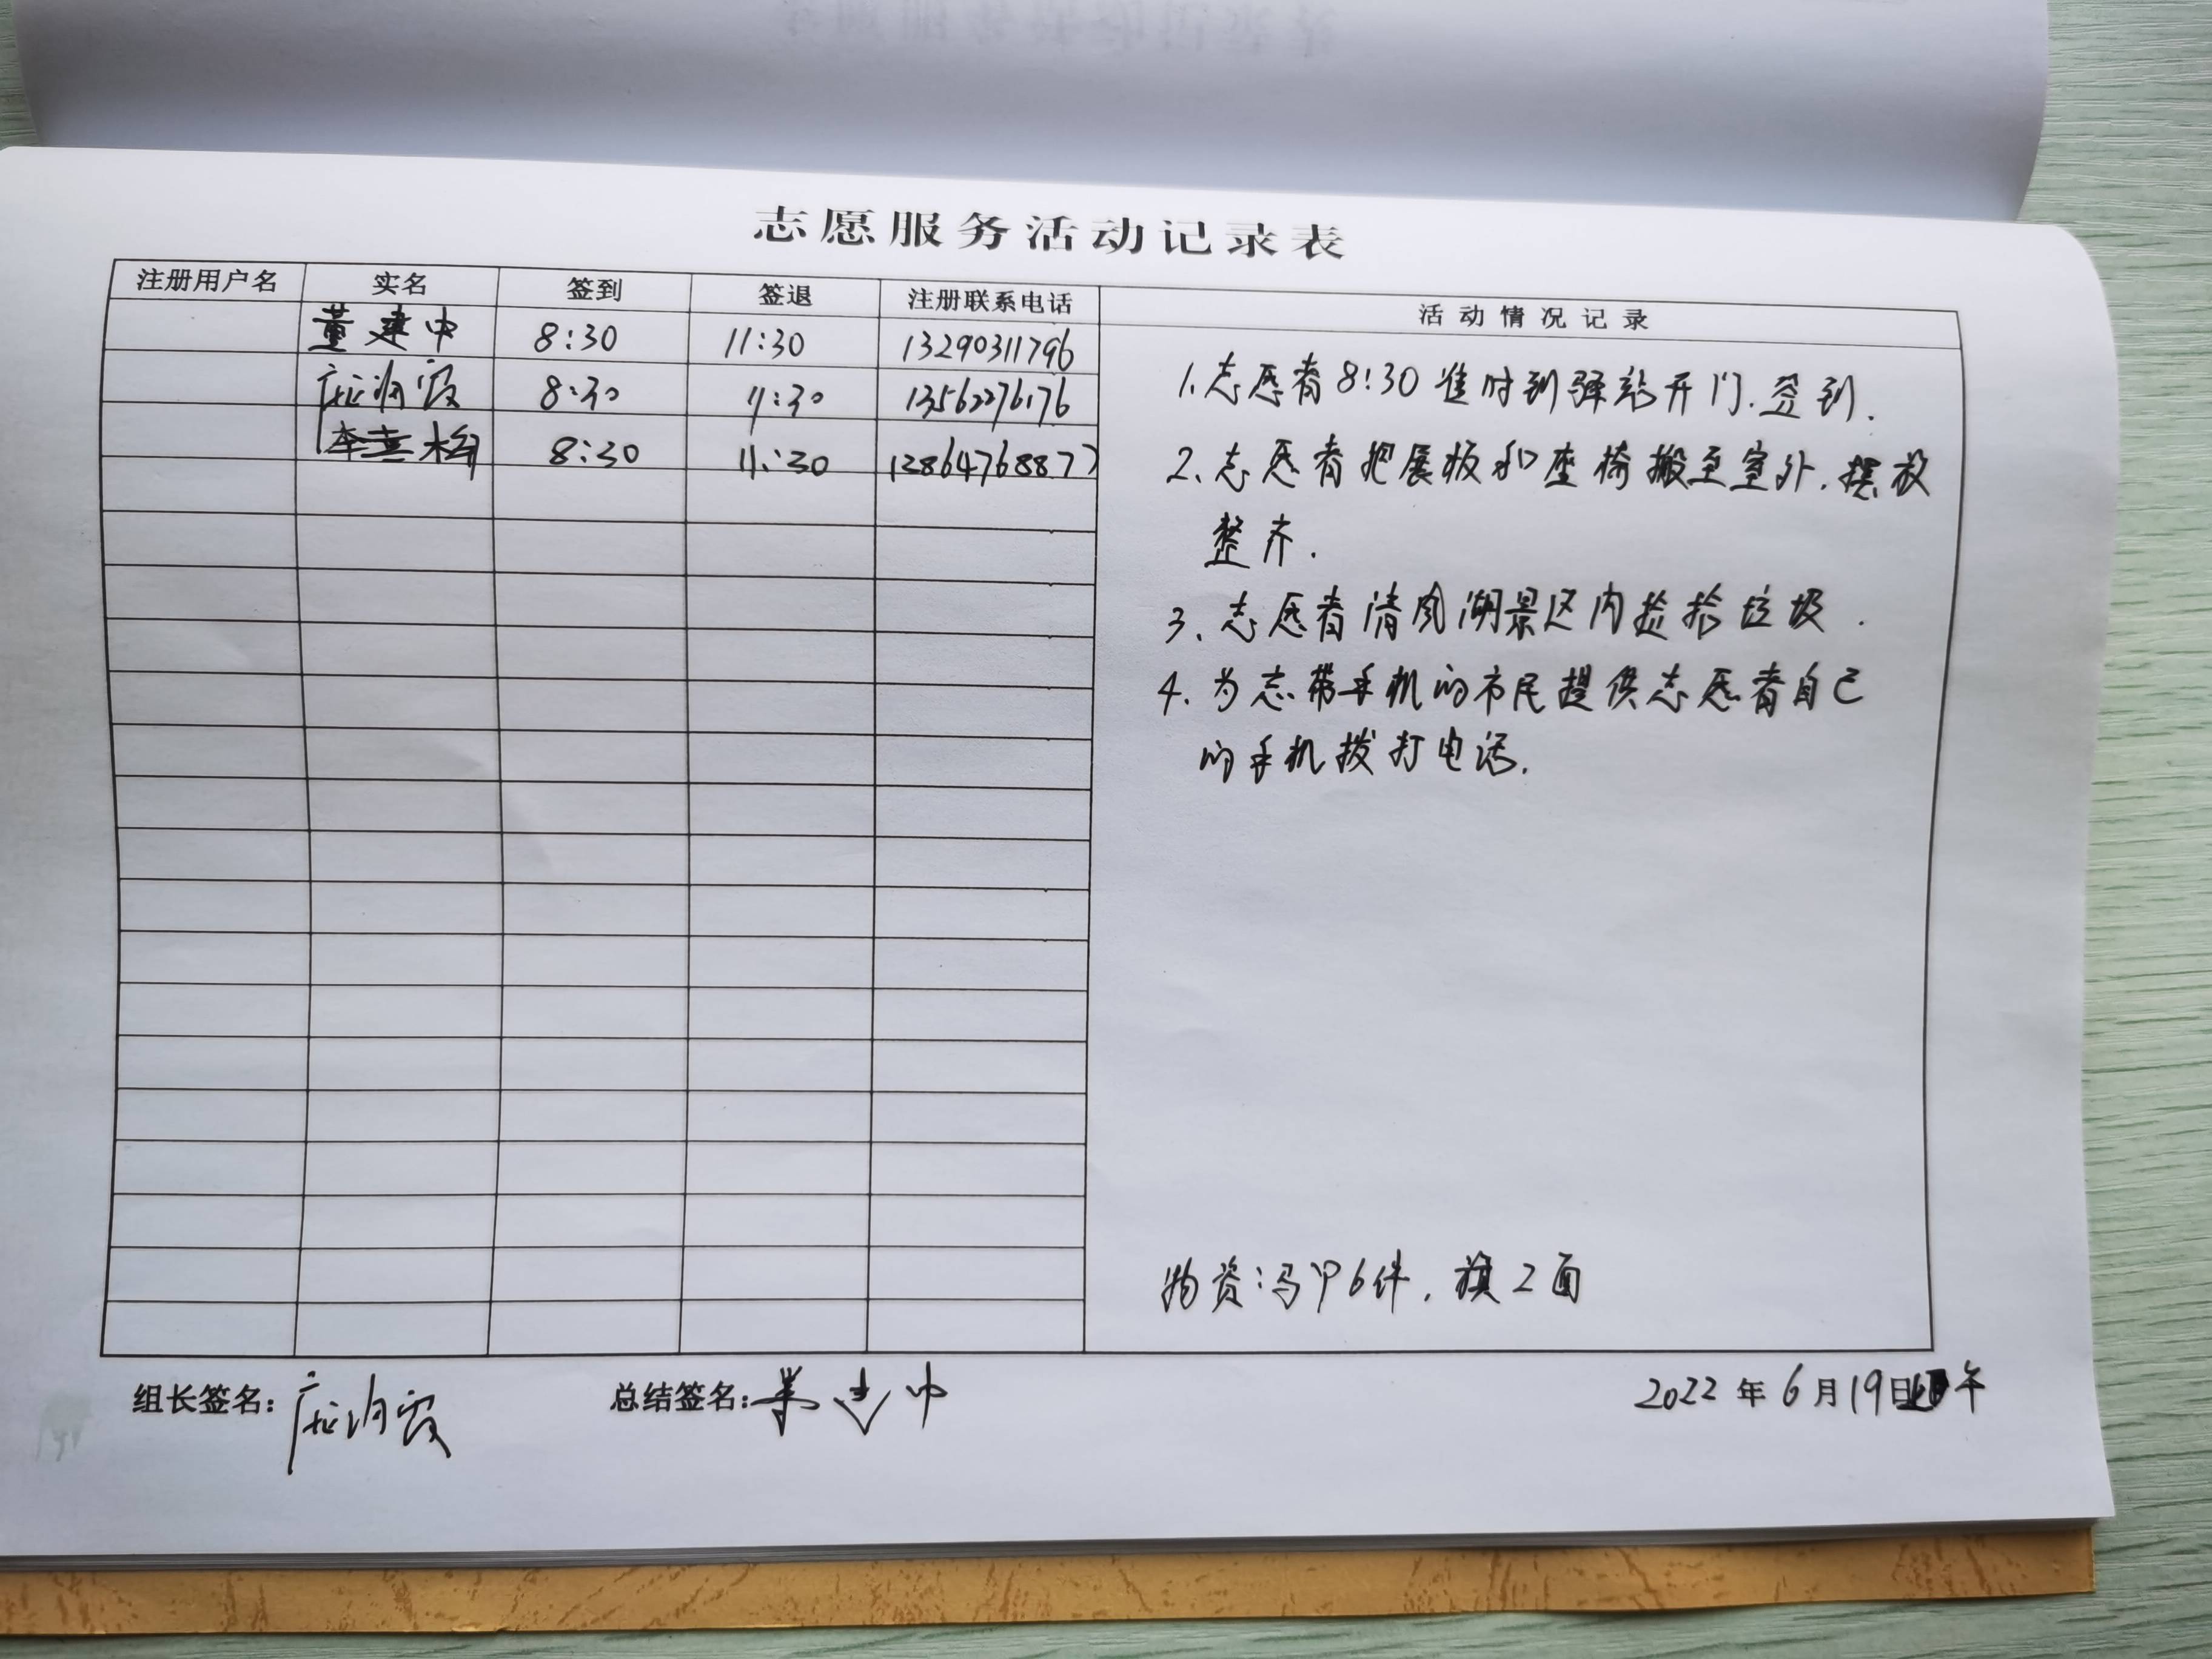 志愿服务活动记录表
注册用户名 实名 签到 签退 注册联系电话 活动情况记录
董建中 8:30 11:30 13290311796
8:30 11:30 13562276176
8:30 11:30 12864768877
1.志愿者8:30准时到驿站开门.签到.
2、志愿者把展板和座椅搬至室外.摆放
整齐.
3、志愿者清风湖景区内捡拾垃圾.
4、为忘带手机的市民提供志愿者自己
的手机拨打电话.
物资:马甲6件,旗2面
组长签名: 总结签名:董建中 2022年6月19日 午